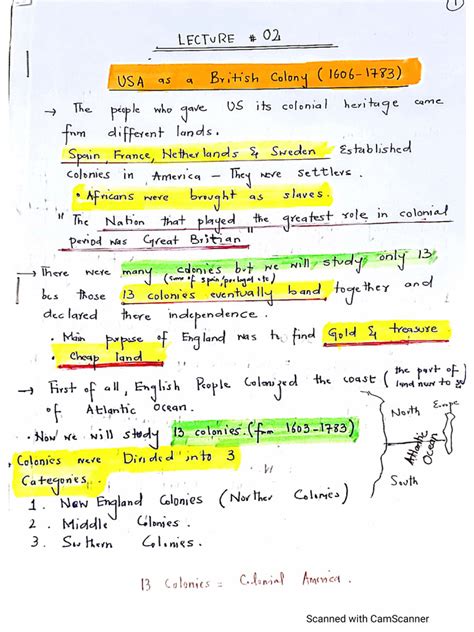 1
LECTURE # 02
USA as a British Colony (1606-1783)
→ The people who gave US its colonial heritage came
from different lands.
Spain, France, Netherlands & Sweden Established
colonies in America - They were settlers.
• Africans were brought as slaves.
" The Nation that played the greatest role in colonial
period was Great Britian "
→ There were many colonies but we will study only 13
(some of spain/portugal etc)
bcs those 13 colonies eventually band together and
declared there independence.
• Main purpose of England was to find Gold & treasure
• Cheap land
→ First of all, English People Colonized the coast ( the part of
land near to
of Atlantic Ocean.
• Now we will study 13 colonies. (from 1603-1783)
North Europe
Atlantic Ocean
South
• Colonies were Divided into 3
Categories.
1. New England Colonies (Norther Colonies)
2. Middle Colonies.
3. Southern Colonies.
13 Colonies = Colonial America.
Scanned with CamScanner